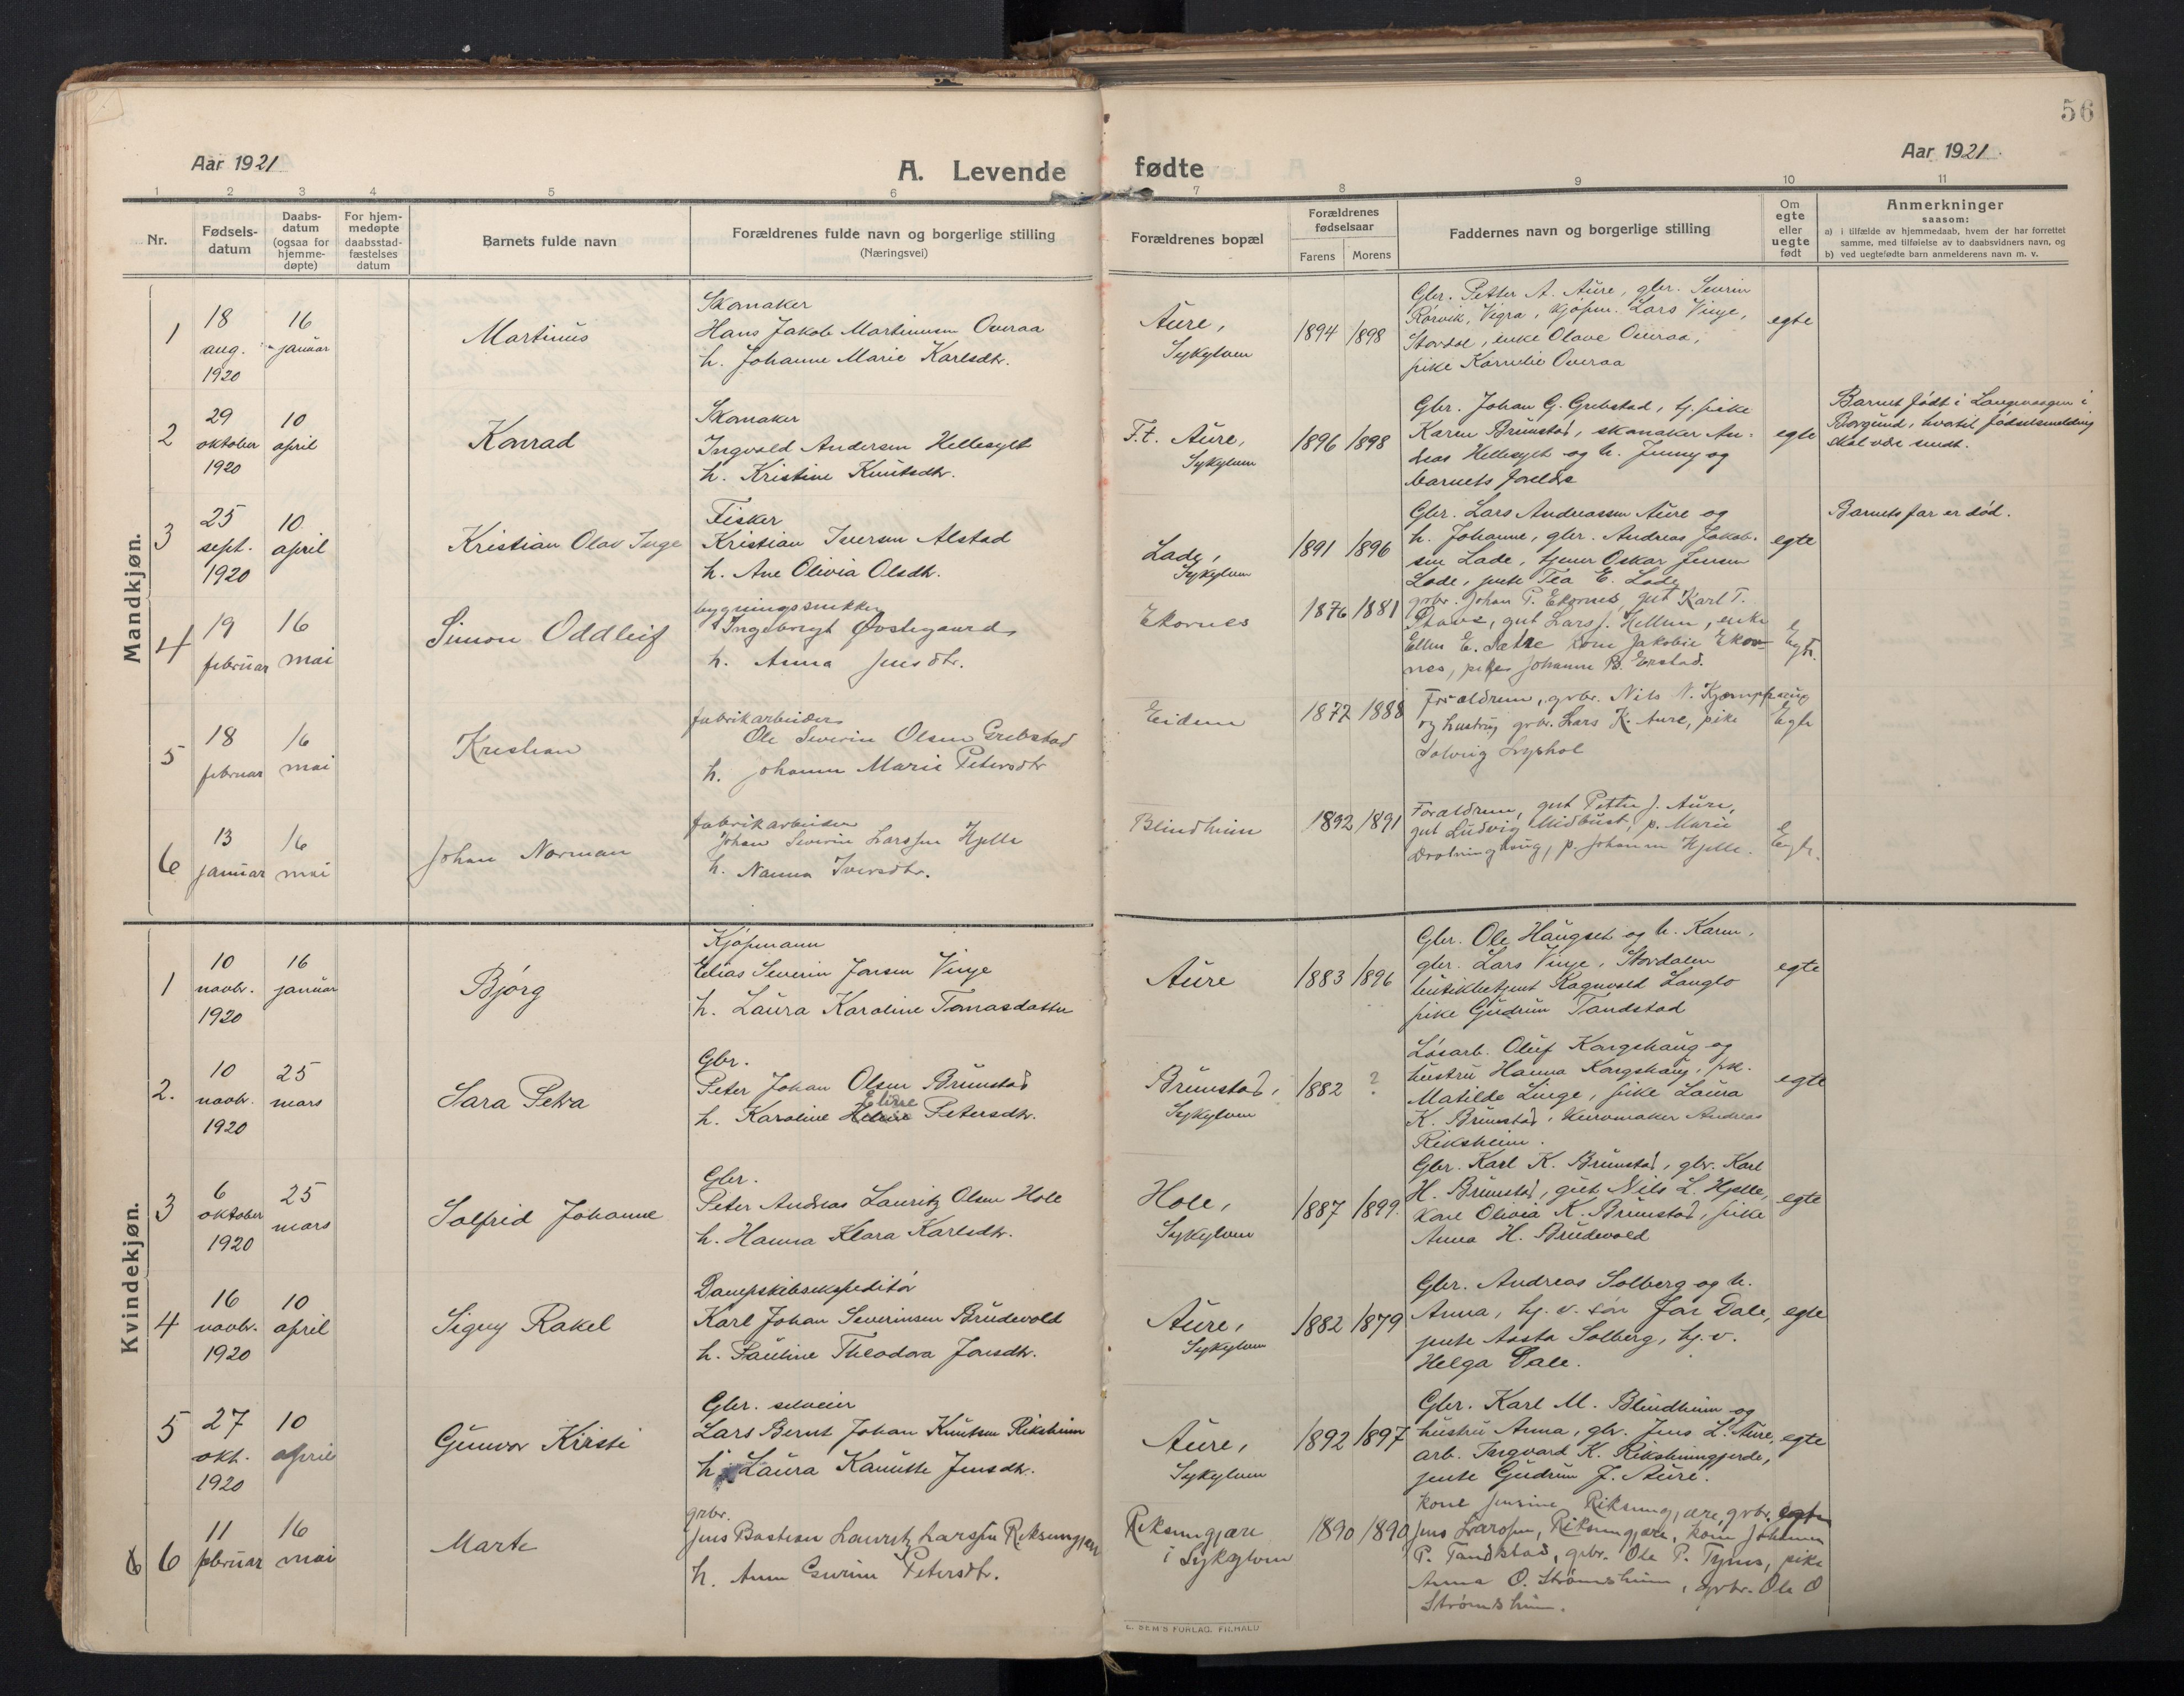 56
Aar 1921
A. Levende fødte
Aar 1921
1 2 3 4 5 6 7 8 9 10 11
Nr.
Fødsels-
datum
Daabs-
datum
(ogsaa for
hjemme-
døpte)
For hjem-
medøpte
daabsstad-
fæstelses
datum
Barnets fulde navn
Forældrenes fulde navn og borgerlige stilling
(Næringsvei)
Forældrenes bopæl
Forældrenes
fødselsaar
Farens Morens
Faddernes navn og borgerlige stilling
Om
egte
eller
uegte
født
Anmerkninger
saasom:
a) i tilfælde av hjemmedaab, hvem der har forrettet
samme, med tilføielse av to daabsvidners navn, og
b) ved uegtefødte barn anmelderens navn m. v.
Mandkjøn.
1
18
aug.
1920
16
januar
Martinus
Skomaker
Hans Jakob Martinusen Overaa
h. Johanne Marie Karlsdtr.
Aure,
Sykylven
1894 1898
Gbr. Petter A. Aure, gbr. Severin
Rørvik, Vigra, kjøpm. Lars Vinje,
Stordal, enke Olave Overaa,
pike Kornelie Overaa
egte
2
29
oktober
1920
10
april
Konrad
Skomaker
Ingvald Andersen Hellesylt
h. Kristine Knutsdtr.
F.t. Aure,
Sykylven
1896 1898
Gbr. Johan G. Grebstad, tj. pike
Karen Brunstad, skomaker An-
dreas Hellesylt og h. Jenny og
barnets foreldre
egte
Barnet født i Langevaagen i
Borgund, hvortil fødselsmelding
skal være sendt.
3
25
sept.
1920
10
april
Kristian Olav Inge
Fisker
Kristian Iversen Alstad
h. Ane Olivia Olsdtr.
Lade,
Sykylven
1891 1896
Gbr. Lars Andreassen Aure og
h. Johanne, gbr. Andreas Jakob-
sen Lade, tjener Oskar Jensen
Lade, jente Tea E. Lade
egte
Barnets far er død.
4
19
februar
16
mai
Simon Oddleif
bygningssnikker
Ingebrigt Øvstegaard
h. Anna Jensdtr.
Ekornes
1876 1881
grbr. Johan P. Ekornes, gut Karl T.
gut Lars J. Hellen, enke
Ellen E. Sætre kone Jakobie Ekor-
nes, pike Johanne B. Erstad.
Egte.
5
18
februar
16
mai
Kristian
fabrikarbeider
Ole Severin Olsen Grebstad
h. Johanne Marie Petersdtr
Eidem
1872 1888
Forældrene, grbr. Nils N. Kjemphaug
og hustru, grbr. Lars K. Aure, pike
Solveig Lyshol
Egte
6
13
januar
16
mai
Johan Norman
fabrikarbeider
Johan Severin Larssen Hjelle
h. Nanna Iversdtr.
Blindheim
1892 1891
Forældrene, gut Petter J. Aure,
gut Ludvig Midbust, p. Marie
Drotninghaug, p. Johanne Hjelle.
Egte.
Kvindekjøn.
1
10
novbr.
1920
16
januar
Bjørg
Kjøpmann
Elias Severin Jonsen Vinje
h. Laura Karoline Tomasdatter
Aure
1883 1896
Gbr. Ole Haugset og h. Karen,
gbr. Lars Vinje, Stordalen
butikbetjent Ragnvald Langlo
pike Gudrun Tandstad
egte
2.
10
novbr.
1920
25
mars
Sara Petra
Gbr.
Peter Johan Olsen Brunstad
Eline
h. Karoline Petersdtr.
Brunstad,
Sykylven
1882 ?
Løsarb. Oluf Kongshaug og
hustru Hanna Kongshaug, pk.
Matilde Linge, pike Laura
K. Brunstad, kurvmaker Andreas
Riksheim.
egte
3
6
oktober
1920
25
mars
Solfrid Johanne
Gbr.
Peter Andreas Lauritz Olsen Hole
h. Hanna Klara Karlsdtr.
Hole,
Sykylven
1887 1899.
Gbr. Karl K. Brunstad, gbr. Karl
H. Brunstad, gut Nils L. Hjelle,
kone Olivia K. Brunstad, pike
Anna H. Brudevold
egte
4
16
novbr.
1920
10
april
Signy Rakel
Dampskibsekspeditør
Karl Johan Severinsen Brudevold
h. Pauline Theodora Jonsdtr.
Aure,
Sykylven
1882 1879
Gbr. Andreas Solberg og h.
Anna, hj. v. søn Jon Dale,
jente Aasta Solberg, hj. v.
Helga Dale.
egte
5
27
okt.
1920
10
april
Gunvor Kirsti
Gbr. selveier
Lars Bernt Johan Knutsen Riksheim
h. Laura Kanutte Jensdtr.
Aure,
Sykylven
1892 1897
Gbr. Karl M. Blindheim og
hustru Anna, gbr. Jens L. Aure,
arb. Ingvard K. Riksheimgjerde,
jente Gudrun J. Aure.
egte
6 6
11
februar
16
mai
Marte
grbr.
Jens Bastian Lauritz Larssen Riksemgjære
h. Anne Gurine Petersdtr.
Riksemgjære
i Sykylven
1890 1890
Kone Jensine Riksemgjære, grbr.
Jens Larssen, Riksemgjære, kone Johanne
P. Tandstad, grbr. Ole P. Tynes, pike
Anna O. Strømsheim, grbr. Ole O
Strømsheim.
egte
E. SEM'S FORLAG. FR.HALD